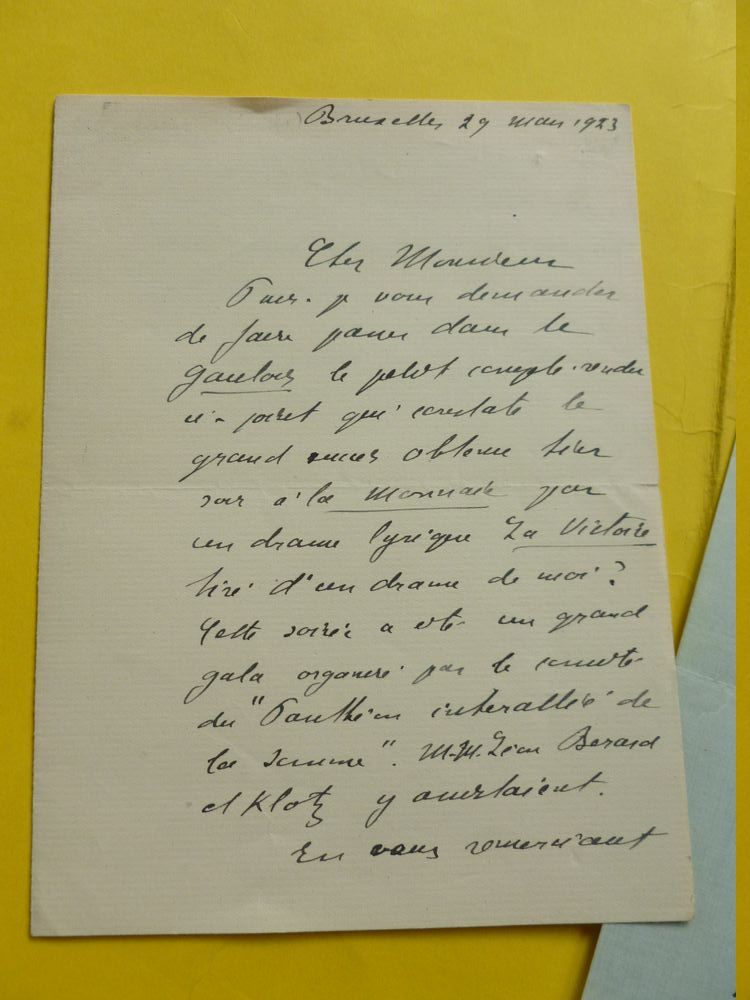 Bruxelles 29 mars 1923
Cher Monsieur
Puis-je vous demander
de faire passer dans le
Gaulois le petit compte-rendu
ci-joint qui constate le
grand succès obtenu hier
soir à la Monnaie par
un drame lyrique La Victoire
tiré d'un drame de moi?
Cette soirée a été un grand
gala organisé par le comité
du "Panthéon interallié de
la Somme". M.M. Léon Berard
et Klotz y assistaient.
En vous remerciant